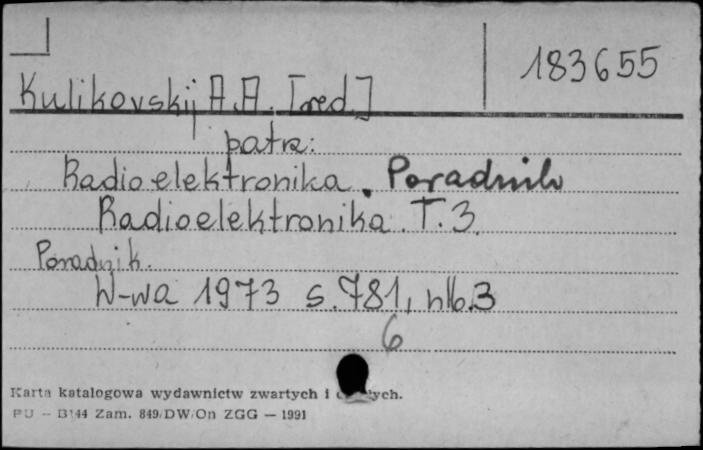 183655
Kulikovskij A.A. [red.]
patrz:
Radioelektronika. Poradnik
Radioelektronika. T. 3.
Poradnik.
W-wa 1973 s. 781, nlb. 3
6
Karta katalogowa wydawnictw zwartych i
PU – B144 Zam. 849/DW/On ZGG — 1991